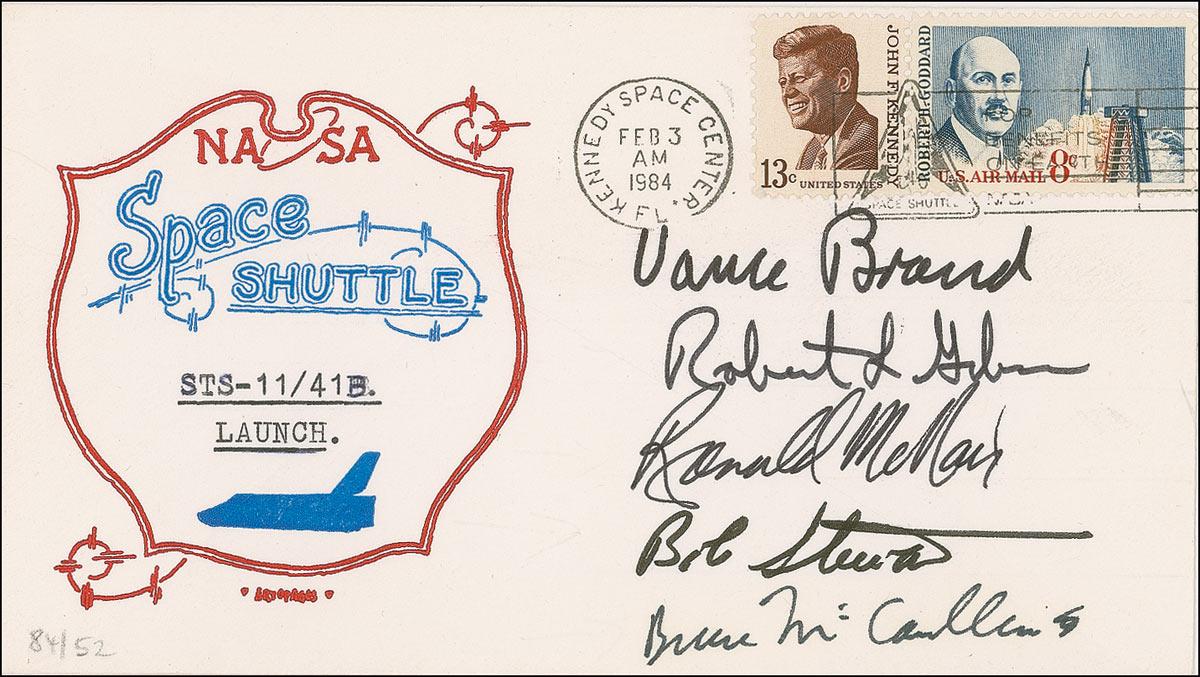 NASA
Space
SHUTTLE
STS-11/41B.
LAUNCH.
84/52
KENNEDY SPACE CENTER
FEB 3
AM
1984
FL
JOHN F KENNEDY
13c UNITED STATES
ROBERT H. GODDARD
U.S. AIR MAIL 8c
BENEFITS
ON EARTH
SPACE SHUTTLE
NASA
Vance Brand
Robert L Gibson
Ronald McNair
Bob Stewart
Bruce McCandless